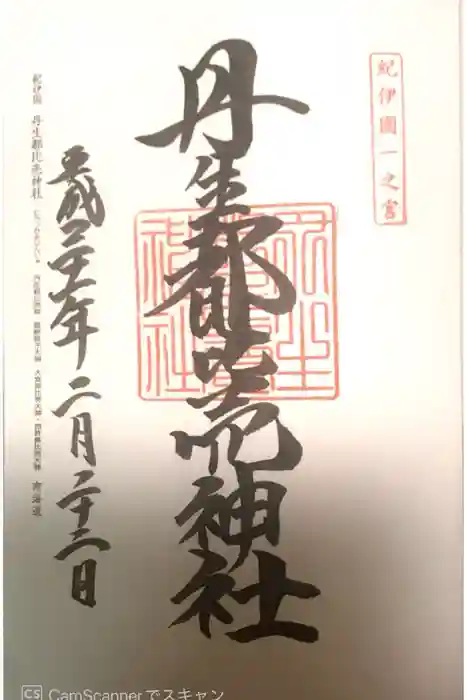 紀伊國一之宮
丹生都比売神社
平成二十七年二月二十三日
紀伊國 丹生都比売神社
南海道
CS CamScannerでスキャン